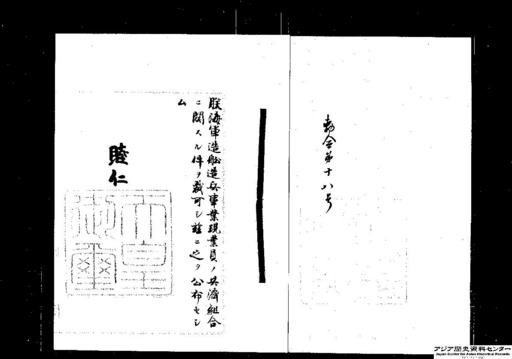 勅令第十八号
朕海軍造船造兵事業現業員ノ共済組合
ニ関スル件ヲ裁可シ茲ニ之ヲ公布セシ
ム
睦仁
天皇御璽
アジア歴史資料センター
Japan Center for Asian Historical Records